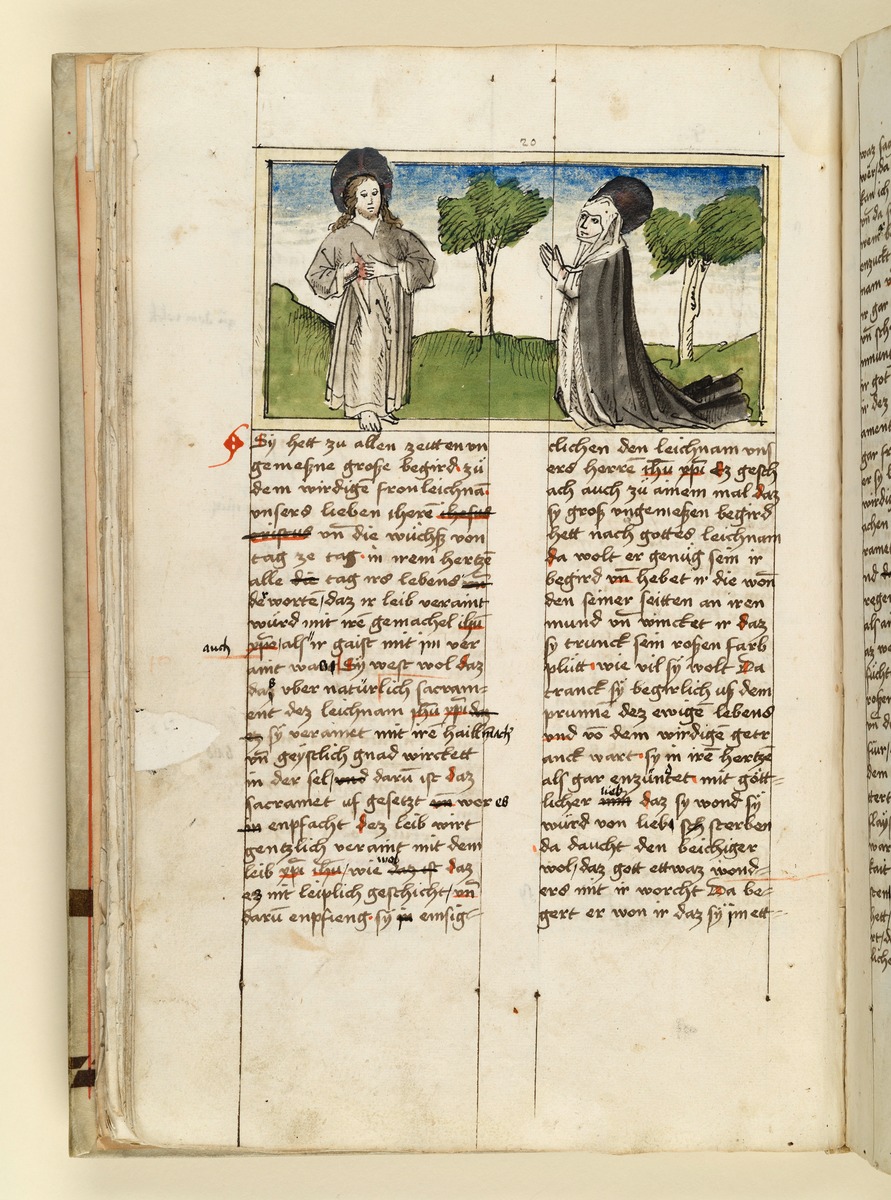 20
Sy hett zu allen zeitten vn
gemeſzne groſze begird zů
dem wirdigē fronleichnā
vnſers lieben iherē iheſus
criſtus vn̄ die wůchſz von
tag ze tag in irem hertzē
alle die tag irs lebens vn̄
der worten daz ir leib veraint
würd mit irē gemachel ihū
xp̄e als ir gaiſt mit im ver
auch
aint was Sy weſt wol daz
das vber natürlich sacram-
ent dez leichnam ihū xp̄i daz
ſy veramet mit ire hailk
vn̄ geyſtlich gnad wirckett
in der ſel vnd darū iſt daz
sacramet uf geſetzt wer es
enpfacht dez leib wirt
gentzlich veraint mit dem
leib xp̄i ihū wie daz iſt daz
wol
es nit leiplich geſchicht vn̄
darū enpfieng ſy in einſig-
clichen den leichnam vns
ers herre ihū xp̄i Ez geſch
ach auch zu ainem mal daz
ſy groſz vngemeſzen begird
hett nach gottes leichnam
da wolt er genůg ſein ir
begird vn̄ hebet ir die won
den ſeiner ſeitten an iren
mund vn̄ wincket ir daz
ſy trunck ſein roſzen farb
plůtt wie vil ſy wolt Da
tranck ſy begirlich uſ dem
prunnē dez ewigē lebens
vnd vō dem wirdigen getr
anck wart ſy in irē hertzē
als gar enzüntet mit gött-
licher lieb daz ſy wond ſy
würd von lieb ſterben
da daucht den beichiger
wol daz gott ettwaz wond-
ers mit ir worcht Da be-
gert er von ir daz ſy im ett-